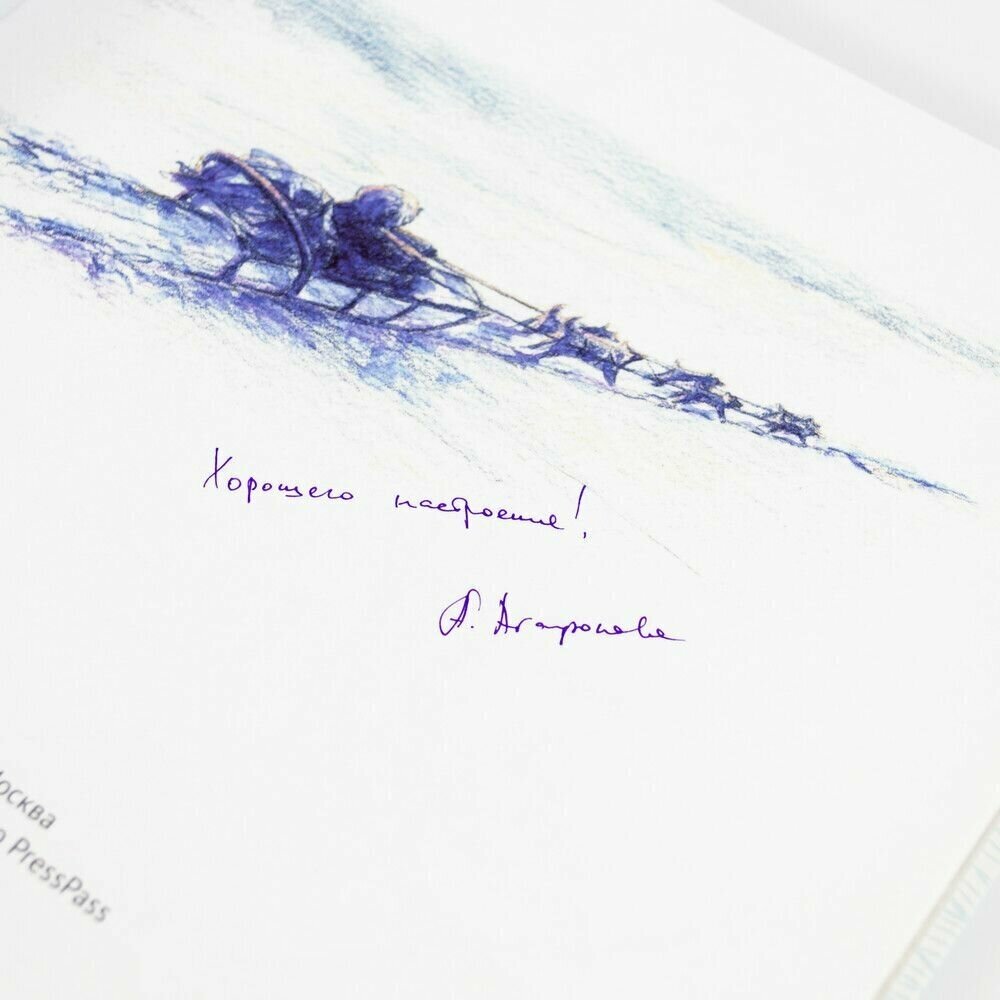 Хорошего настроения!
А. Агафонова
Москва
PressPass